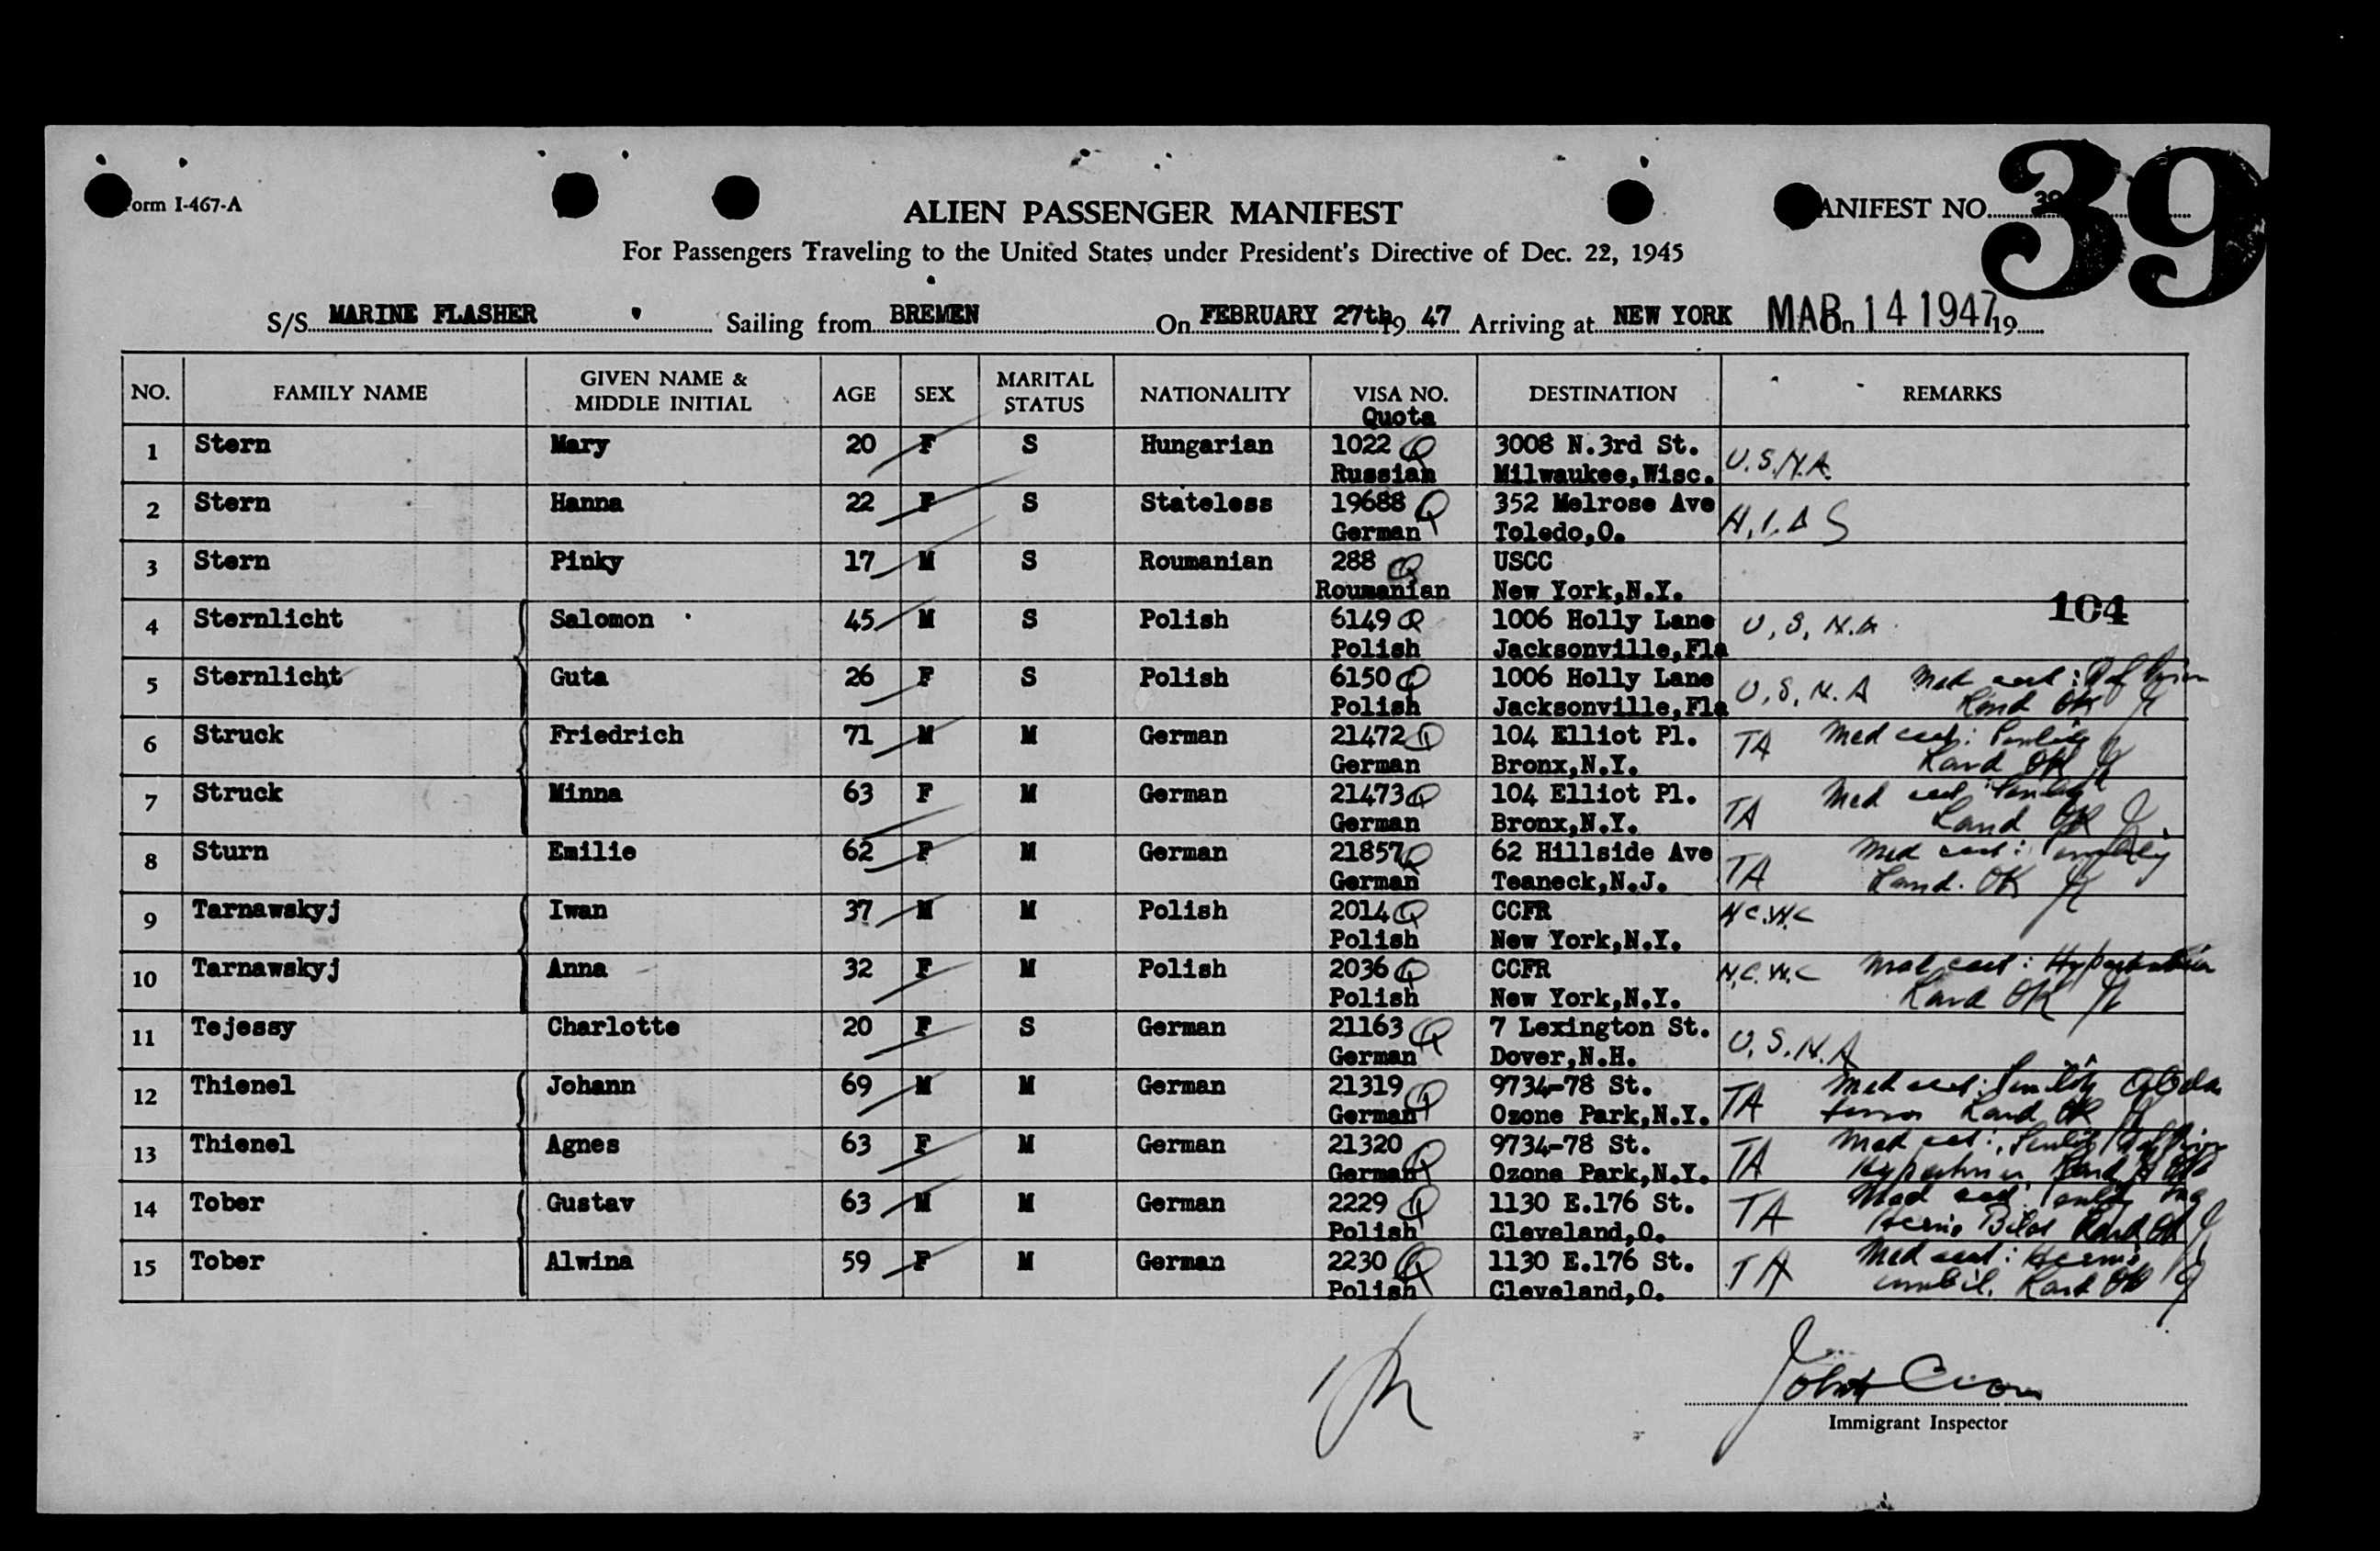 Form I-467-A
ALIEN PASSENGER MANIFEST
MANIFEST NO. 39
39
For Passengers Traveling to the United States under President's Directive of Dec. 22, 1945
S/S MARINE FLASHER Sailing from BREMEN On FEBRUARY 27th 19 47 Arriving at NEW YORK On MAR 14 1947 19
NO. FAMILY NAME GIVEN NAME & MIDDLE INITIAL AGE SEX MARITAL STATUS NATIONALITY VISA NO. Quota DESTINATION REMARKS
1 Stern Mary 20 F S Hungarian 1022 Q 3008 N.3rd St. U.S.N.A.
Russian Milwaukee,Wisc.
2 Stern Hanna 22 F S Stateless 19688 Q 352 Melrose Ave H.I.A S
German Toledo,O.
3 Stern Pinky 17 M S Roumanian 288 Q USCC
Roumanian New York,N.Y.
104
4 Sternlicht Salomon 45 M S Polish 6149 Q 1006 Holly Lane U.S.N.A
Polish Jacksonville,Fla
5 Sternlicht Guta 26 F S Polish 6150 Q 1006 Holly Lane U.S.N.A Med cert: Def Vision
Polish Jacksonville,Fla Land OK
6 Struck Friedrich 71 M M German 21472 Q 104 Elliot Pl. TA Med cert: Senility
German Bronx,N.Y. Land OK
7 Struck Minna 63 F M German 21473 Q 104 Elliot Pl. TA Med cert Senility
German Bronx,N.Y. Land OK
8 Sturn Emilie 62 F M German 21857 Q 62 Hillside Ave TA Med cert: Senility
German Teaneck,N.J. Land. OK
9 Tarnawskyj Iwan 37 M M Polish 2014 Q CCFR N.C.W.C
Polish New York,N.Y.
10 Tarnawskyj Anna 32 F M Polish 2036 Q CCFR N.C.W.C Med cert:
Polish New York,N.Y. Land OK
11 Tejessy Charlotte 20 F S German 21163 Q 7 Lexington St. U.S.N.A
German Dover,N.H.
12 Thienel Johann 69 M M German 21319 Q 9734-78 St. TA Med cert: Senility
German Ozone Park,N.Y. Land OK
13 Thienel Agnes 63 F M German 21320 Q 9734-78 St. TA Med cert: Senility Def Vision
German Ozone Park,N.Y. Land OK
14 Tober Gustav 63 M M German 2229 Q 1130 E.176 St. TA Med cert Senility
Polish Cleveland,O. Hernia Bilat Land OK
15 Tober Alwina 59 F M German 2230 Q 1130 E.176 St. TA Med cert: Hernia
Polish Cleveland,O. umbil. Land OK
Immigrant Inspector